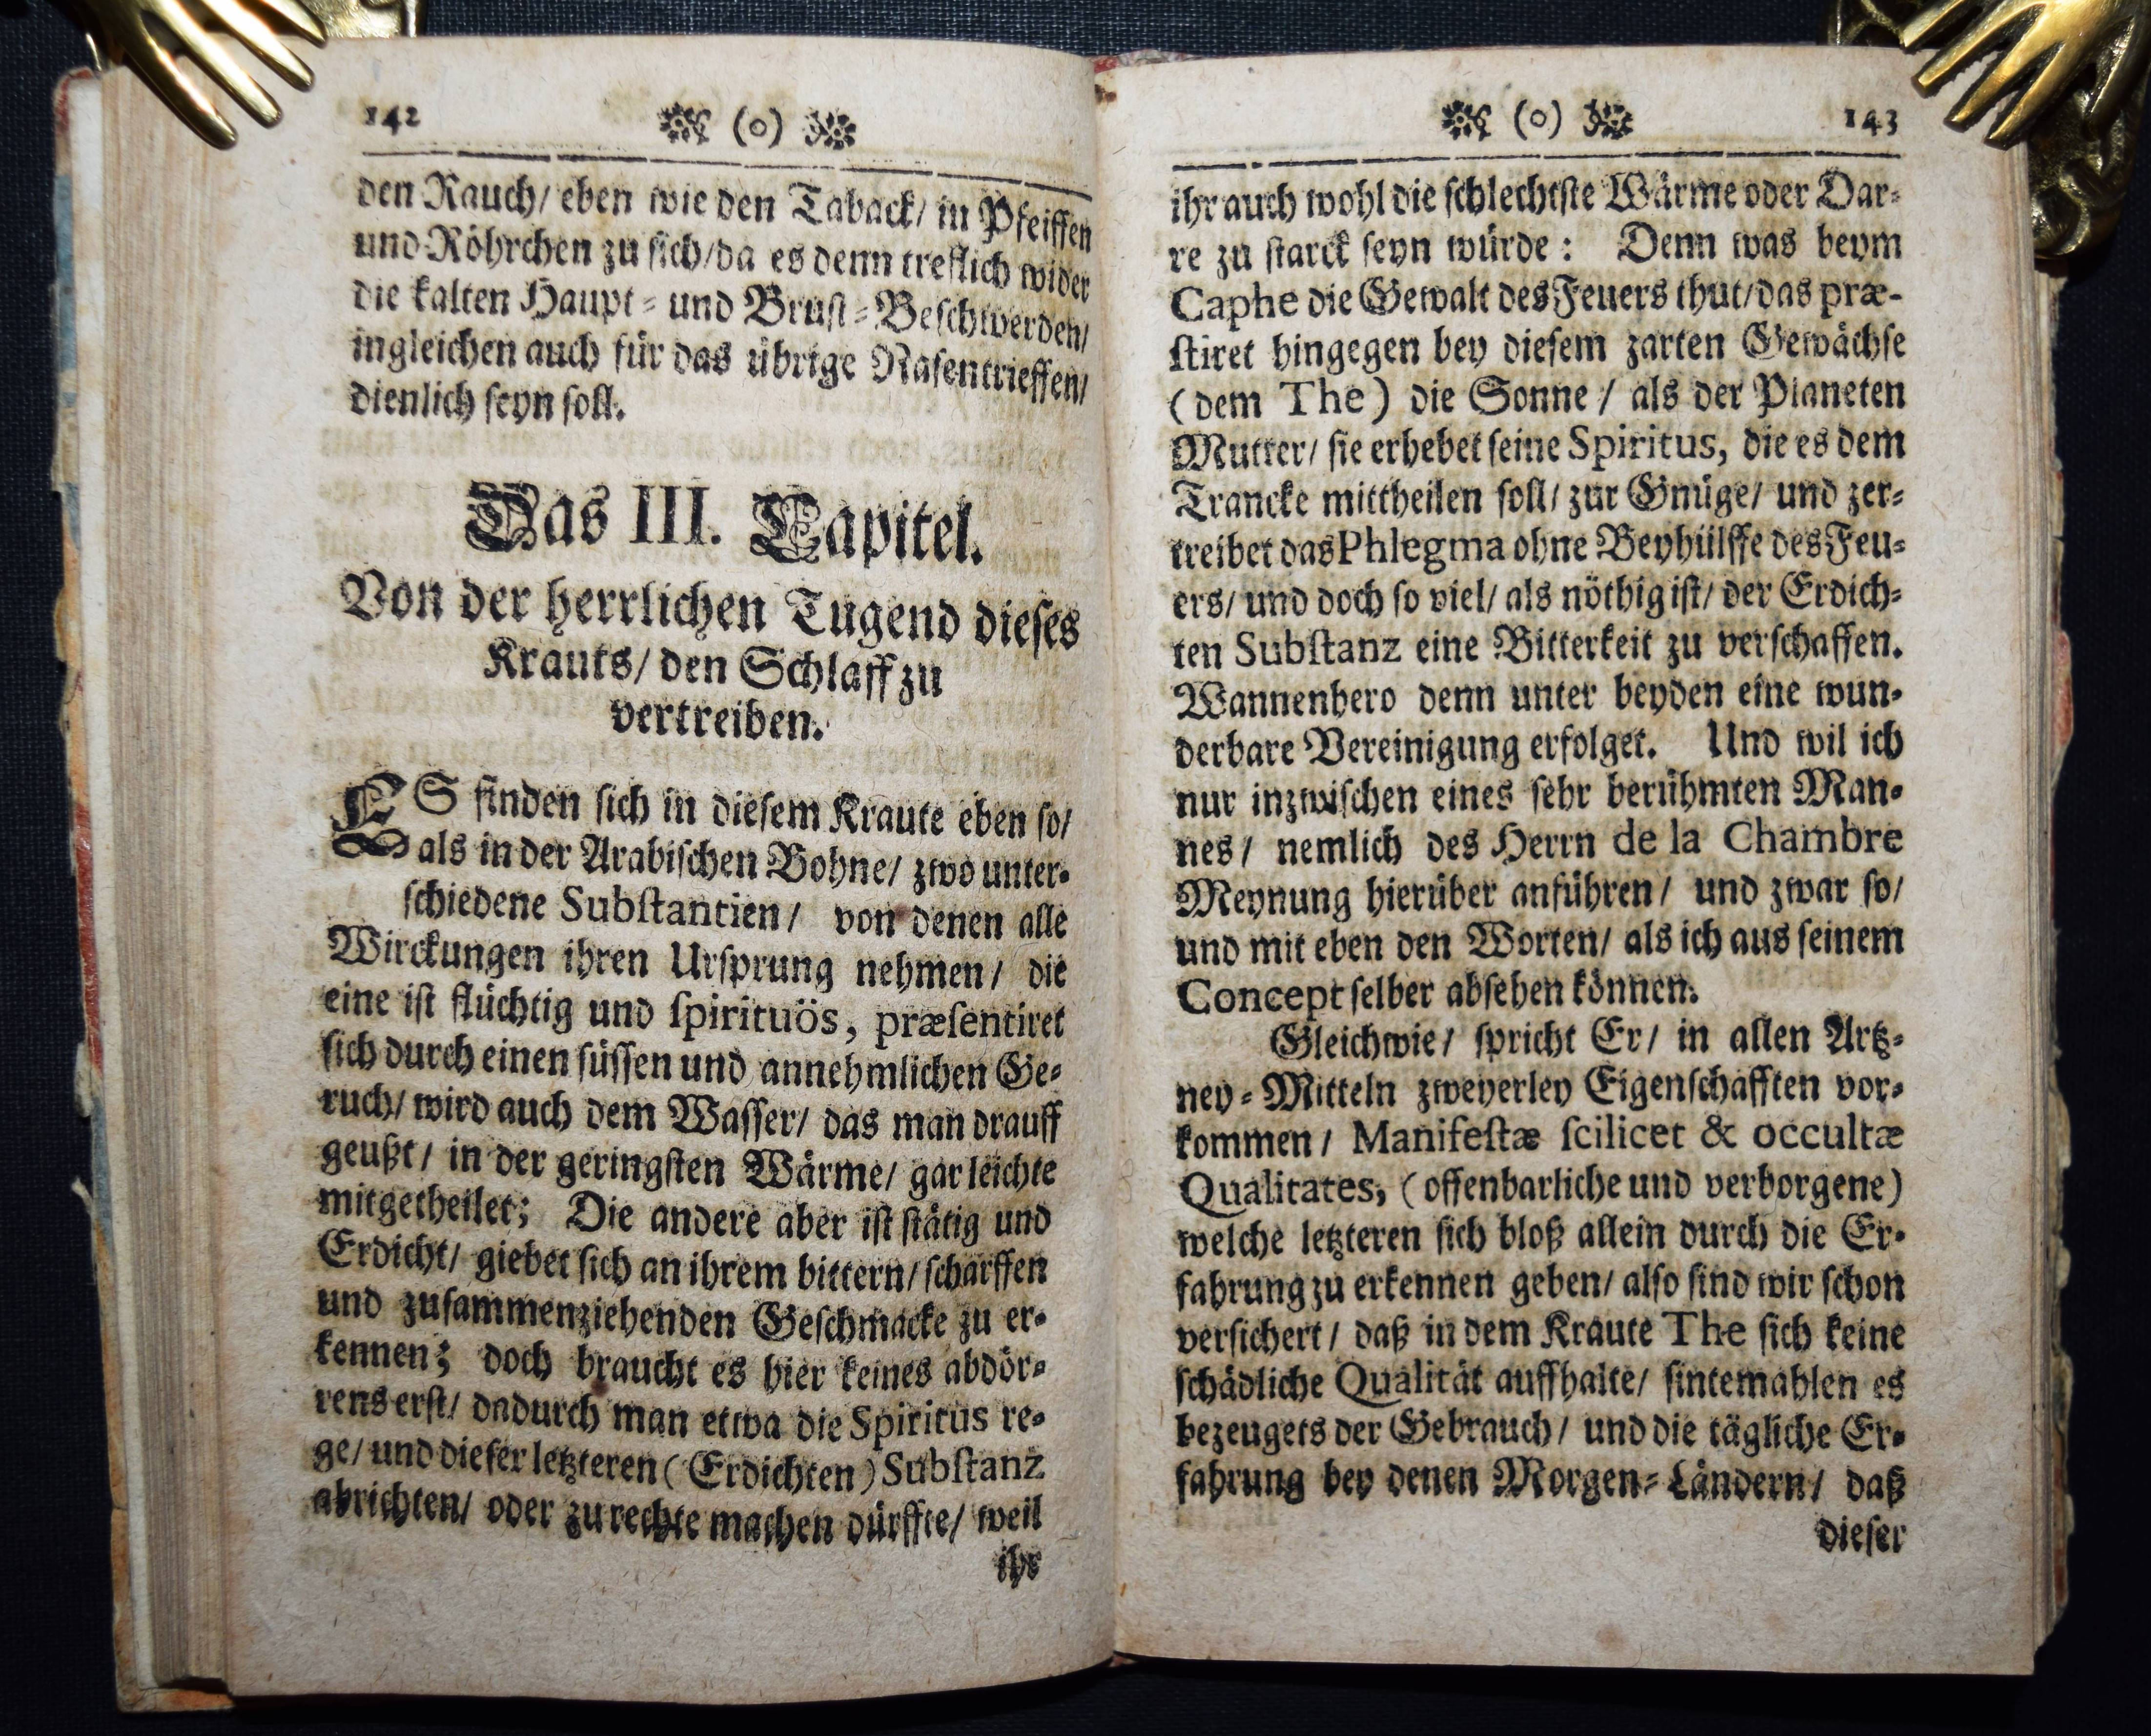 142 (o)
den Rauch/ eben wie den Taback/ in Pfeiffen
und Röhrchen zu sich/da es denn treflich wider
die kalten Haupt= und Brust=Beschwerden/
ingleichen auch für das übrige Nasentrieffen/
dienlich seyn soll.
Das III. Capitel.
Von der herrlichen Tugend dieses
Krauts/ den Schlaff zu
vertreiben.
ES finden sich in diesem Kraute eben so/
als in der Arabischen Bohne/ zwo unter=
schiedene Substantien/ von denen alle
Wirckungen ihren Ursprung nehmen/ die
eine ist flüchtig und spirituös, præsentiret
sich durch einen süssen und annehmlichen Ge=
ruch/ wird auch dem Wasser/ das man drauff
geußt/ in der geringsten Wärme/ gar leichte
mitgetheilet; Die andere aber ist stätig und
Erdicht/ giebet sich an ihrem bittern/ scharffen
und zusammenziehenden Geschmacke zu er=
kennen; doch braucht es hier keines abdör=
rens erst/ dadurch man etwa die Spiritus re=
ge/ und dieser letzteren (Erdichten) Substanz
abrichten/ oder zu rechte machen dürffte/ weil
ihr
(o) 143
ihr auch wohl die schlechtste Wärme oder Dar=
re zu starck seyn würde: Denn was beym
Caphe die Gewalt des Feuers thut/das præ-
stiret hingegen bey diesem zarten Gewächse
(dem The) die Sonne / als der Planeten
Mutter/ sie erhebet seine Spiritus, die es dem
Trancke mittheilen soll/ zur Gnüge/ und zer=
treibet das Phlegma ohne Beyhülffe des Feu=
ers/ und doch so viel/ als nöthig ist/ der Erdich=
ten Substanz eine Bitterkeit zu verschaffen.
Wannenhero denn unter beyden eine wun=
derbare Vereinigung erfolget. Und wil ich
nur inzwischen eines sehr berühmten Man=
nes/ nemlich des Herrn de la Chambre
Meynung hierüber anführen/ und zwar so/
und mit eben den Worten/ als ich aus seinem
Concept selber absehen können.
Gleichwie/ spricht Er/ in allen Artz=
ney=Mitteln zweyerley Eigenschafften vor=
kommen/ Manifestæ scilicet & occultæ
Qualitates, (offenbarliche und verborgene)
welche letzteren sich bloß allein durch die Er=
fahrung zu erkennen geben/ also sind wir schon
versichert/ daß in dem Kraute The sich keine
schädliche Qualität auffhalte/ sintemahlen es
bezeugets der Gebrauch/ und die tägliche Er=
fahrung bey denen Morgen=Ländern/ daß
dieser